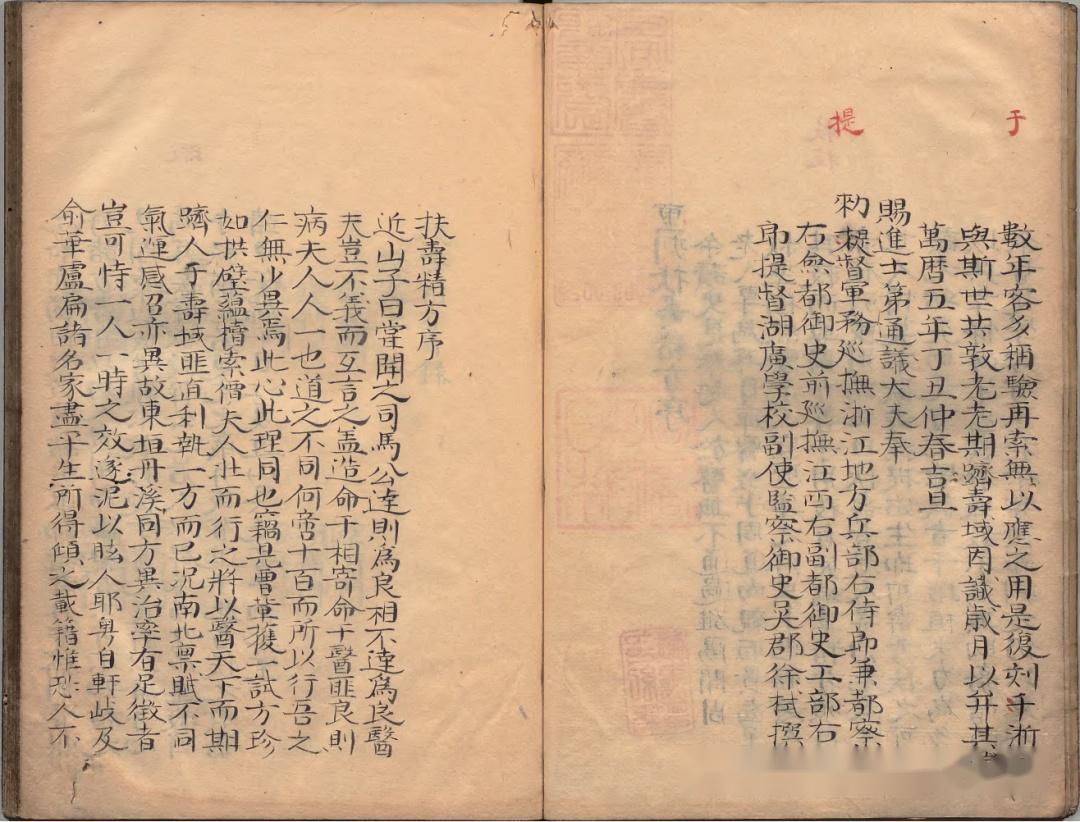 于
數年客亥稱驗再索無以應之用是復刻于浙
與斯世共敦老老期躋壽域因識歲月以弁其
萬曆五年丁丑仲春吉旦
賜進士第通議大夫奉
提
勑提督軍務巡撫浙江地方兵部右侍郎兼都察
右僉都御史前巡撫江西右副都御史工部右
郎提督湖廣學校副使監察御史吳郡徐栻撰
扶壽精方序
近山子曰甞聞之司馬公達則爲良相不達爲良醫
夫豈不義而互言之盖造命于相寄命于醫匪良則
病夫人人一也道之不同何啻十百而所以行吾之
仁無少異焉此心此理同也竊見曹軍獲一試方珍
如拱璧蘊櫝索僧夫人壯而行之將以醫天下而期
躋人于壽域匪直利執一方而已况南北禀賦不同
氣運感召亦異故東垣丹溪同方異治率有足徵者
豈可恃一人一時之效遂泥以眩人耶粤自軒岐及
俞華盧扁諸名家盡平生所得傾之載籍惟恐人不